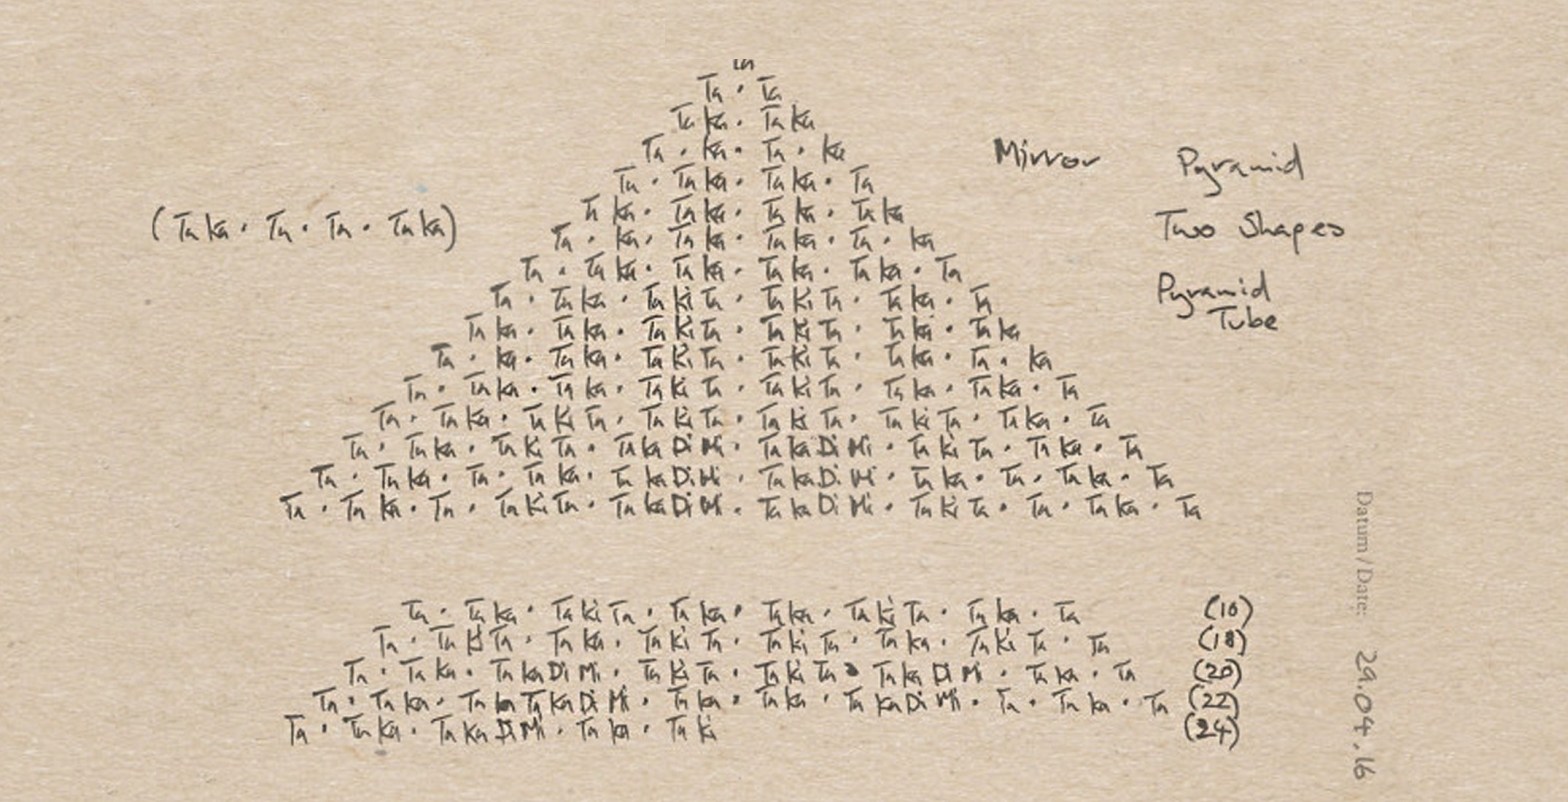 Ta · Ta
Taka · Taka
Ta · ka · Ta · ka
Ta · Taka · Taka · Ta
Taka · Taka · Taka · Taka
Ta · ka · Taka · Taka · Ta · ka
Ta · Taka · Taka · Taka · Taka · Ta
Ta · Taka · TaKiTa · TaKiTa · Taka · Ta
Taka · Taka · TaKiTa · TaKiTa · Taka · Taka
Ta · ka · Taka · TaKiTa · TaKiTa · Taka · Ta · ka
Ta · Taka · Taka · TaKiTa · TaKiTa · Taka · Taka · Ta
Ta · Taka · TaKiTa · TaKiTa · TaKiTa · TaKiTa · Taka · Ta
Ta · Taka · TaKiTa · TakaDiMi · TakaDiMi · TaKiTa · Taka · Ta
Ta · Taka · Ta · Taka · TakaDiMi · TakaDiMi · Taka · Ta · Taka · Ta
Ta · Taka · Ta · TaKiTa · TakaDiMi · TakaDiMi · TaKiTa · Ta · Taka · Ta
(Taka · Ta · Ta · Taka)
Mirror
Pyramid
Two Shapes
Pyramid
Tube
Ta · Taka · TaKiTa · Taka · Taka · TaKiTa · Taka · Ta (16)
Ta · TaKiTa · Taka · TaKiTa · TaKiTa · Taka · TaKiTa · Ta (18)
Ta · Taka · TakaDiMi · TaKiTa · TaKiTa · TakaDiMi · Taka · Ta (20)
Ta · Taka · TakaDiMi · Taka · Taka · TakaDiMi · Ta · Taka · Ta (22)
Ta · Taka · TakaDiMi · Taka · TaKi (24)
Datum / Date: 29.04.16